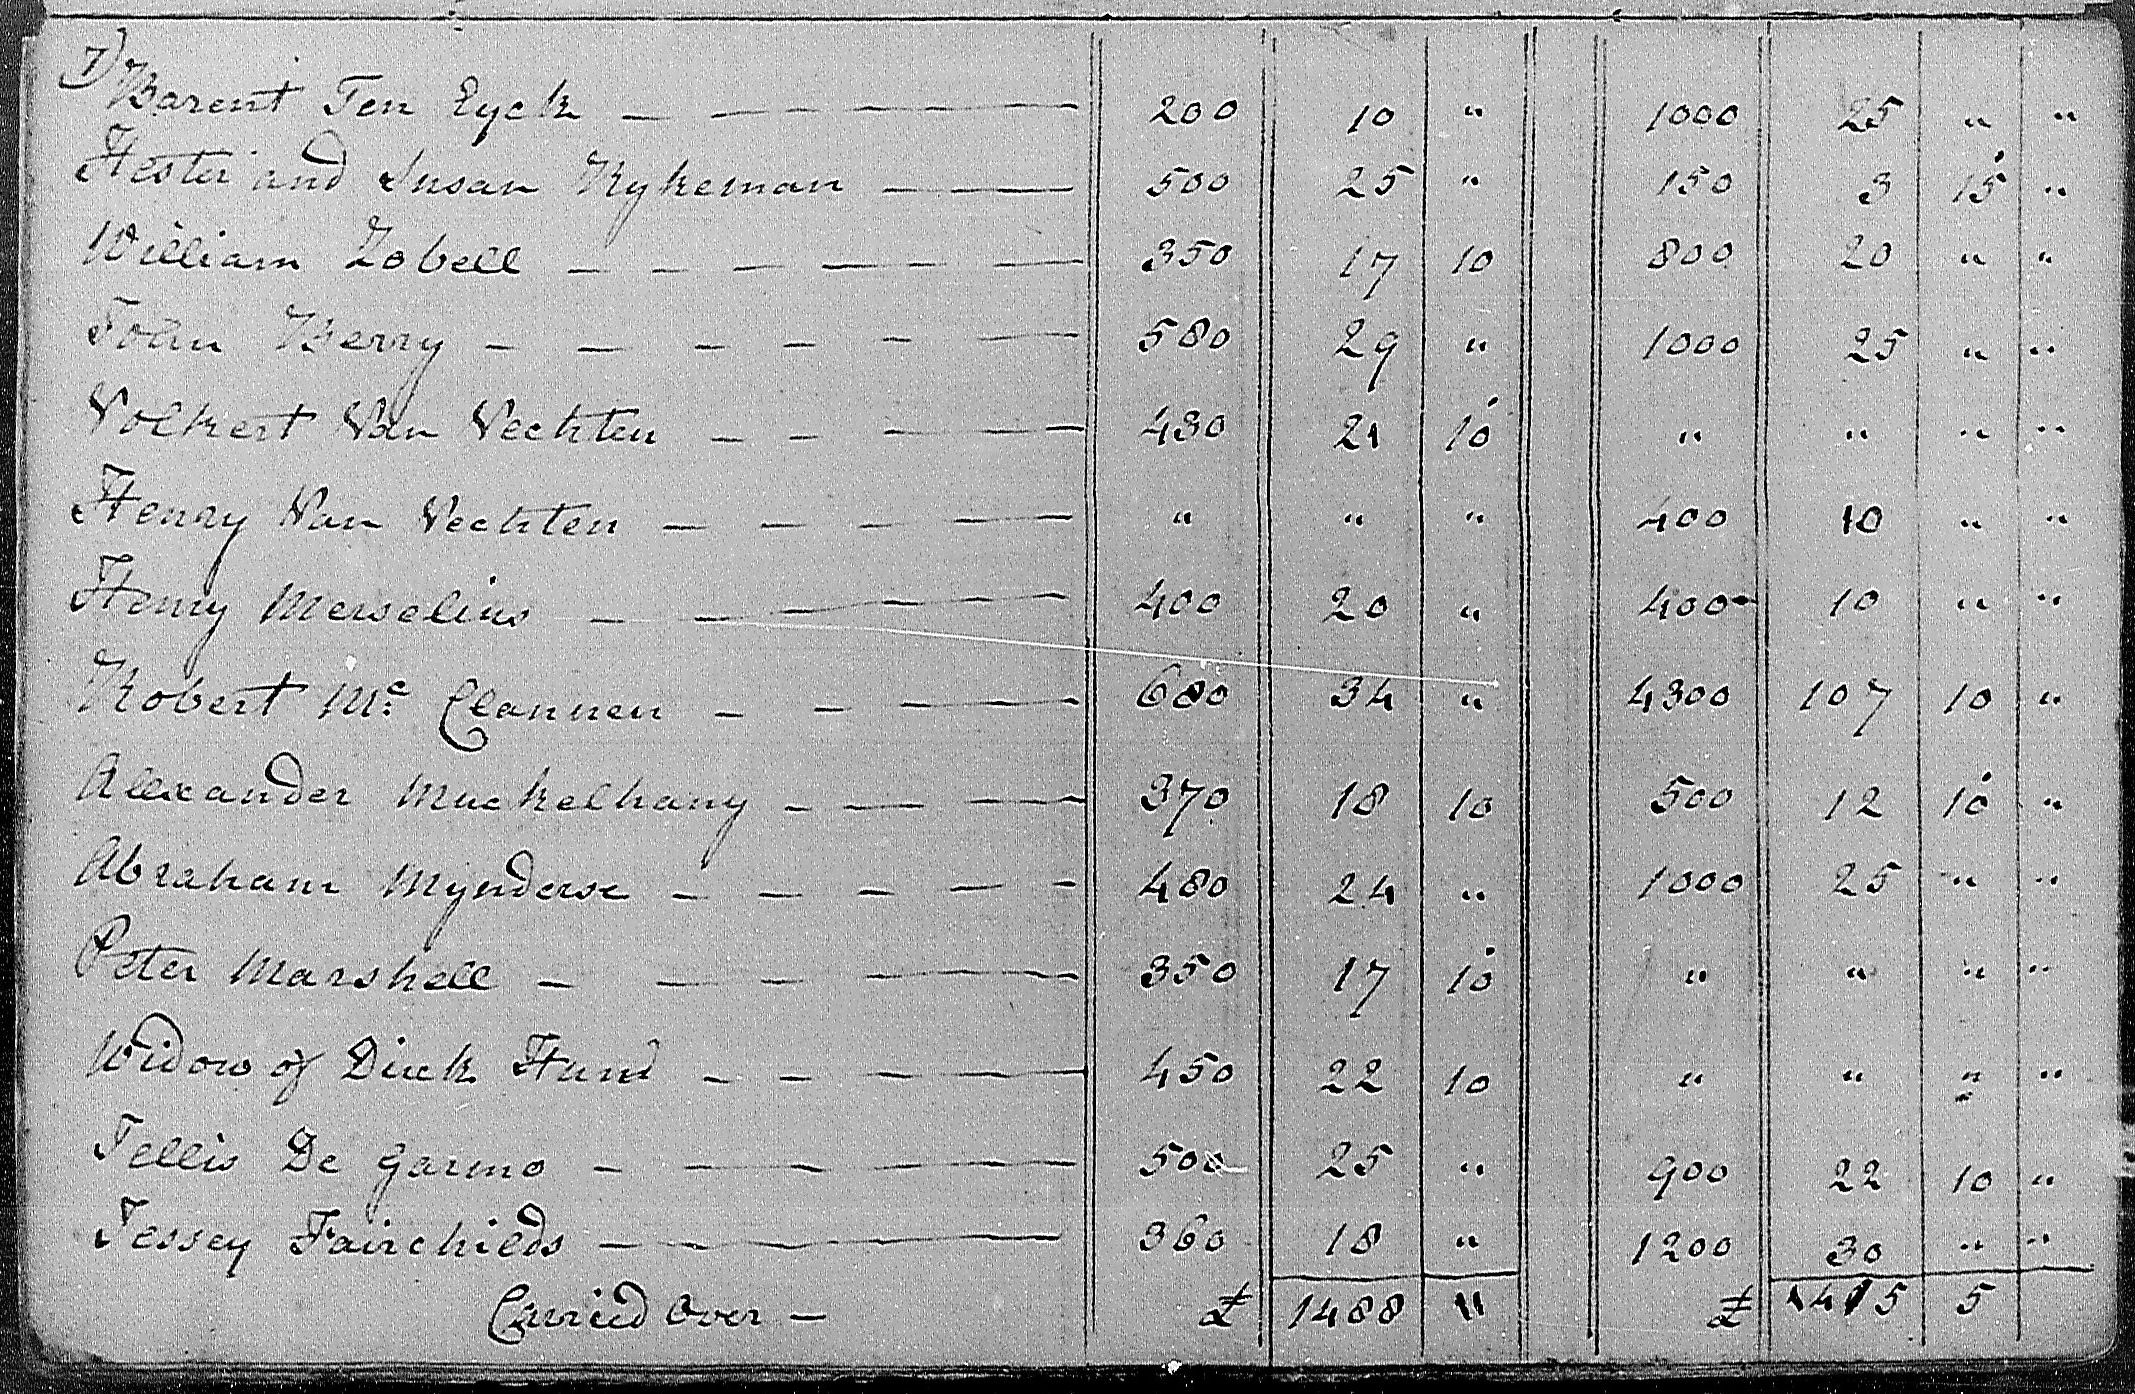 7)
Barent Ten Eyck — — — — — — 200 10 " 1000 25 " "
Hester and Susan Rykeman — — — 500 25 " 150 3 15 "
William Zobell — — — — — — 350 17 10 800 20 " "
John Berry — — — — — — 580 29 " 1000 25 " "
Volkert Van Vechten — — — — 430 21 10 " " " "
Henry Van Vechten — — — — " " " 400 10 " "
Henry Merselius — — — — — 400 20 " 400 10 " "
Robert Mc Clannen — — — — 680 34 " 4300 107 10 "
Alexander Muckelhany — — — 370 18 10 500 12 10 "
Abraham Mynderse — — — — — 480 24 " 1000 25 " "
Peter Marshall — — — — — 350 17 10 " " " "
Widow of Dirck Hund — — — — 450 22 10 " " " "
Jellis De Garmo — — — — — 500 25 " 900 22 10 "
Jessey Fairchilds — — — — 360 18 " 1200 30 " "
Carried Over — £ 1488 " £ 1415 5